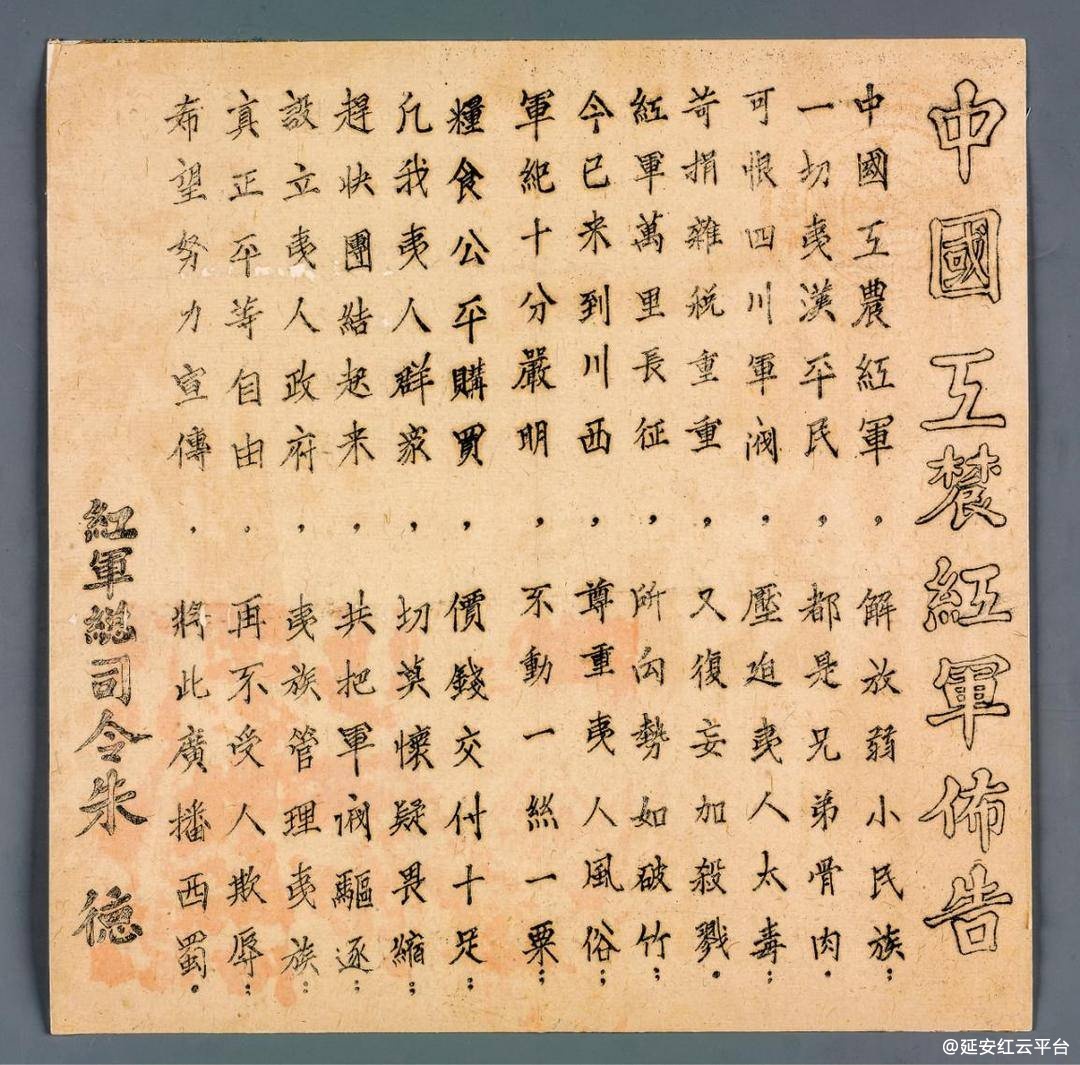 中國工農紅軍佈告
中國工農紅軍，解放弱小民族；
一切夷漢平民，都是兄弟骨肉．
可恨四川軍阀，壓迫夷人太毒；
苛捐雜税重重，又復妄加殺戮．
紅軍萬里長征，所向勢如破竹；
今已来到川西，尊重夷人風俗；
軍紀十分嚴明，不動一絲一粟；
糧食公平購買，價錢交付十足；
凡我夷人群衆，切莫懷疑畏縮；
趕快團結起来，共把軍阀驅逐；
設立夷人政府，夷族管理夷族；
真正平等自由，再不受人欺辱；
希望努力宣傳，將此廣播西蜀．
紅軍總司令朱德
@延安红云平台